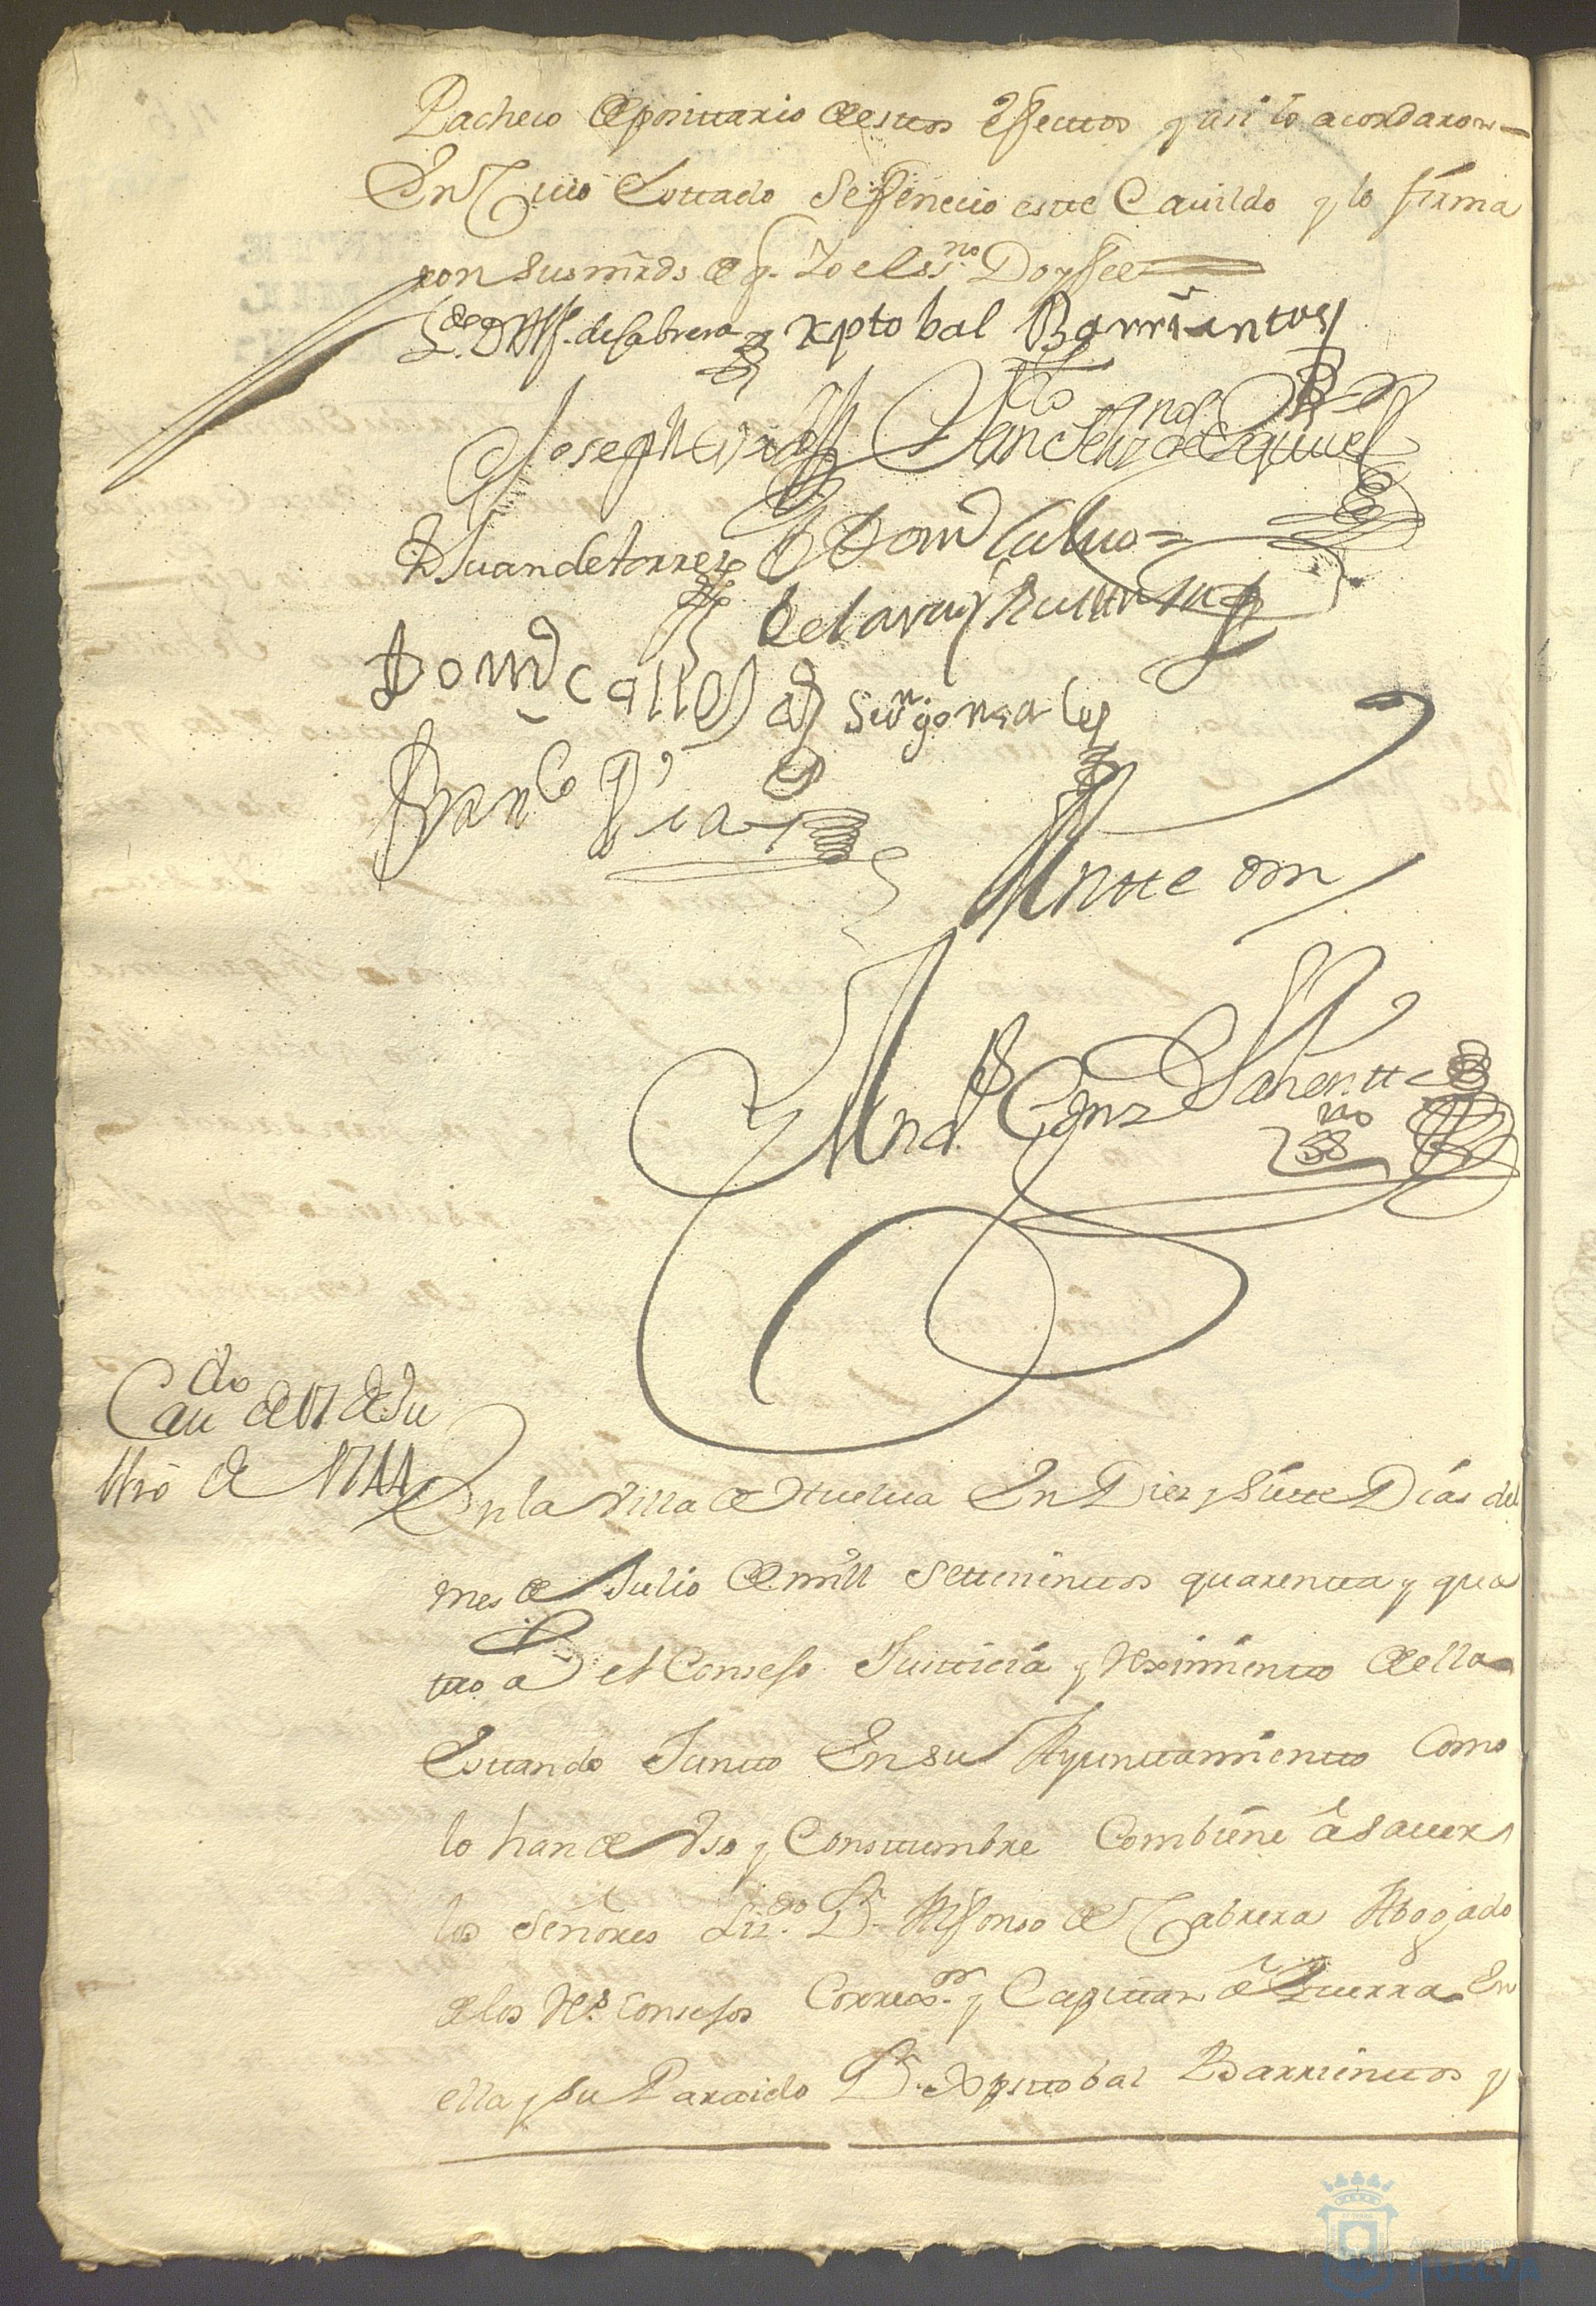 Pacheco depositario destos effectos y asi lo acordaron
En Cuio Esttado Se fenecio este Cauildo y lo firma
ron sus mrds de q. Yo el ss.no Doy fee
L.do D. Alf. de Cabrera xptobal Barrientos
Joseph
Juan de torres Dom Calvo
Dom Calles Sin gonsales
Fran.co Dias
Antte mi
And.s
Cau.do de 17 de Ju
llio de 1744
En la Villa de Huelua En Diez y Siette Dias del
mes de Julio de mill Settecienttos quarentta y qua
ttro a.s el Consejo Justticia y Reximientto della
Esttando Juntto En su Ayunttamientto Como
lo han de Vso y Consttumbre Combiene â sauer
los Señores Liz.do D.n Alfonso de Cabrera Abogado
de los R.s Consejos Correx.or y Capittan â Guerra En
ella y su Parttido D.n Xpsttobal Barrienttos y
Ayuntamiento
HUELVA